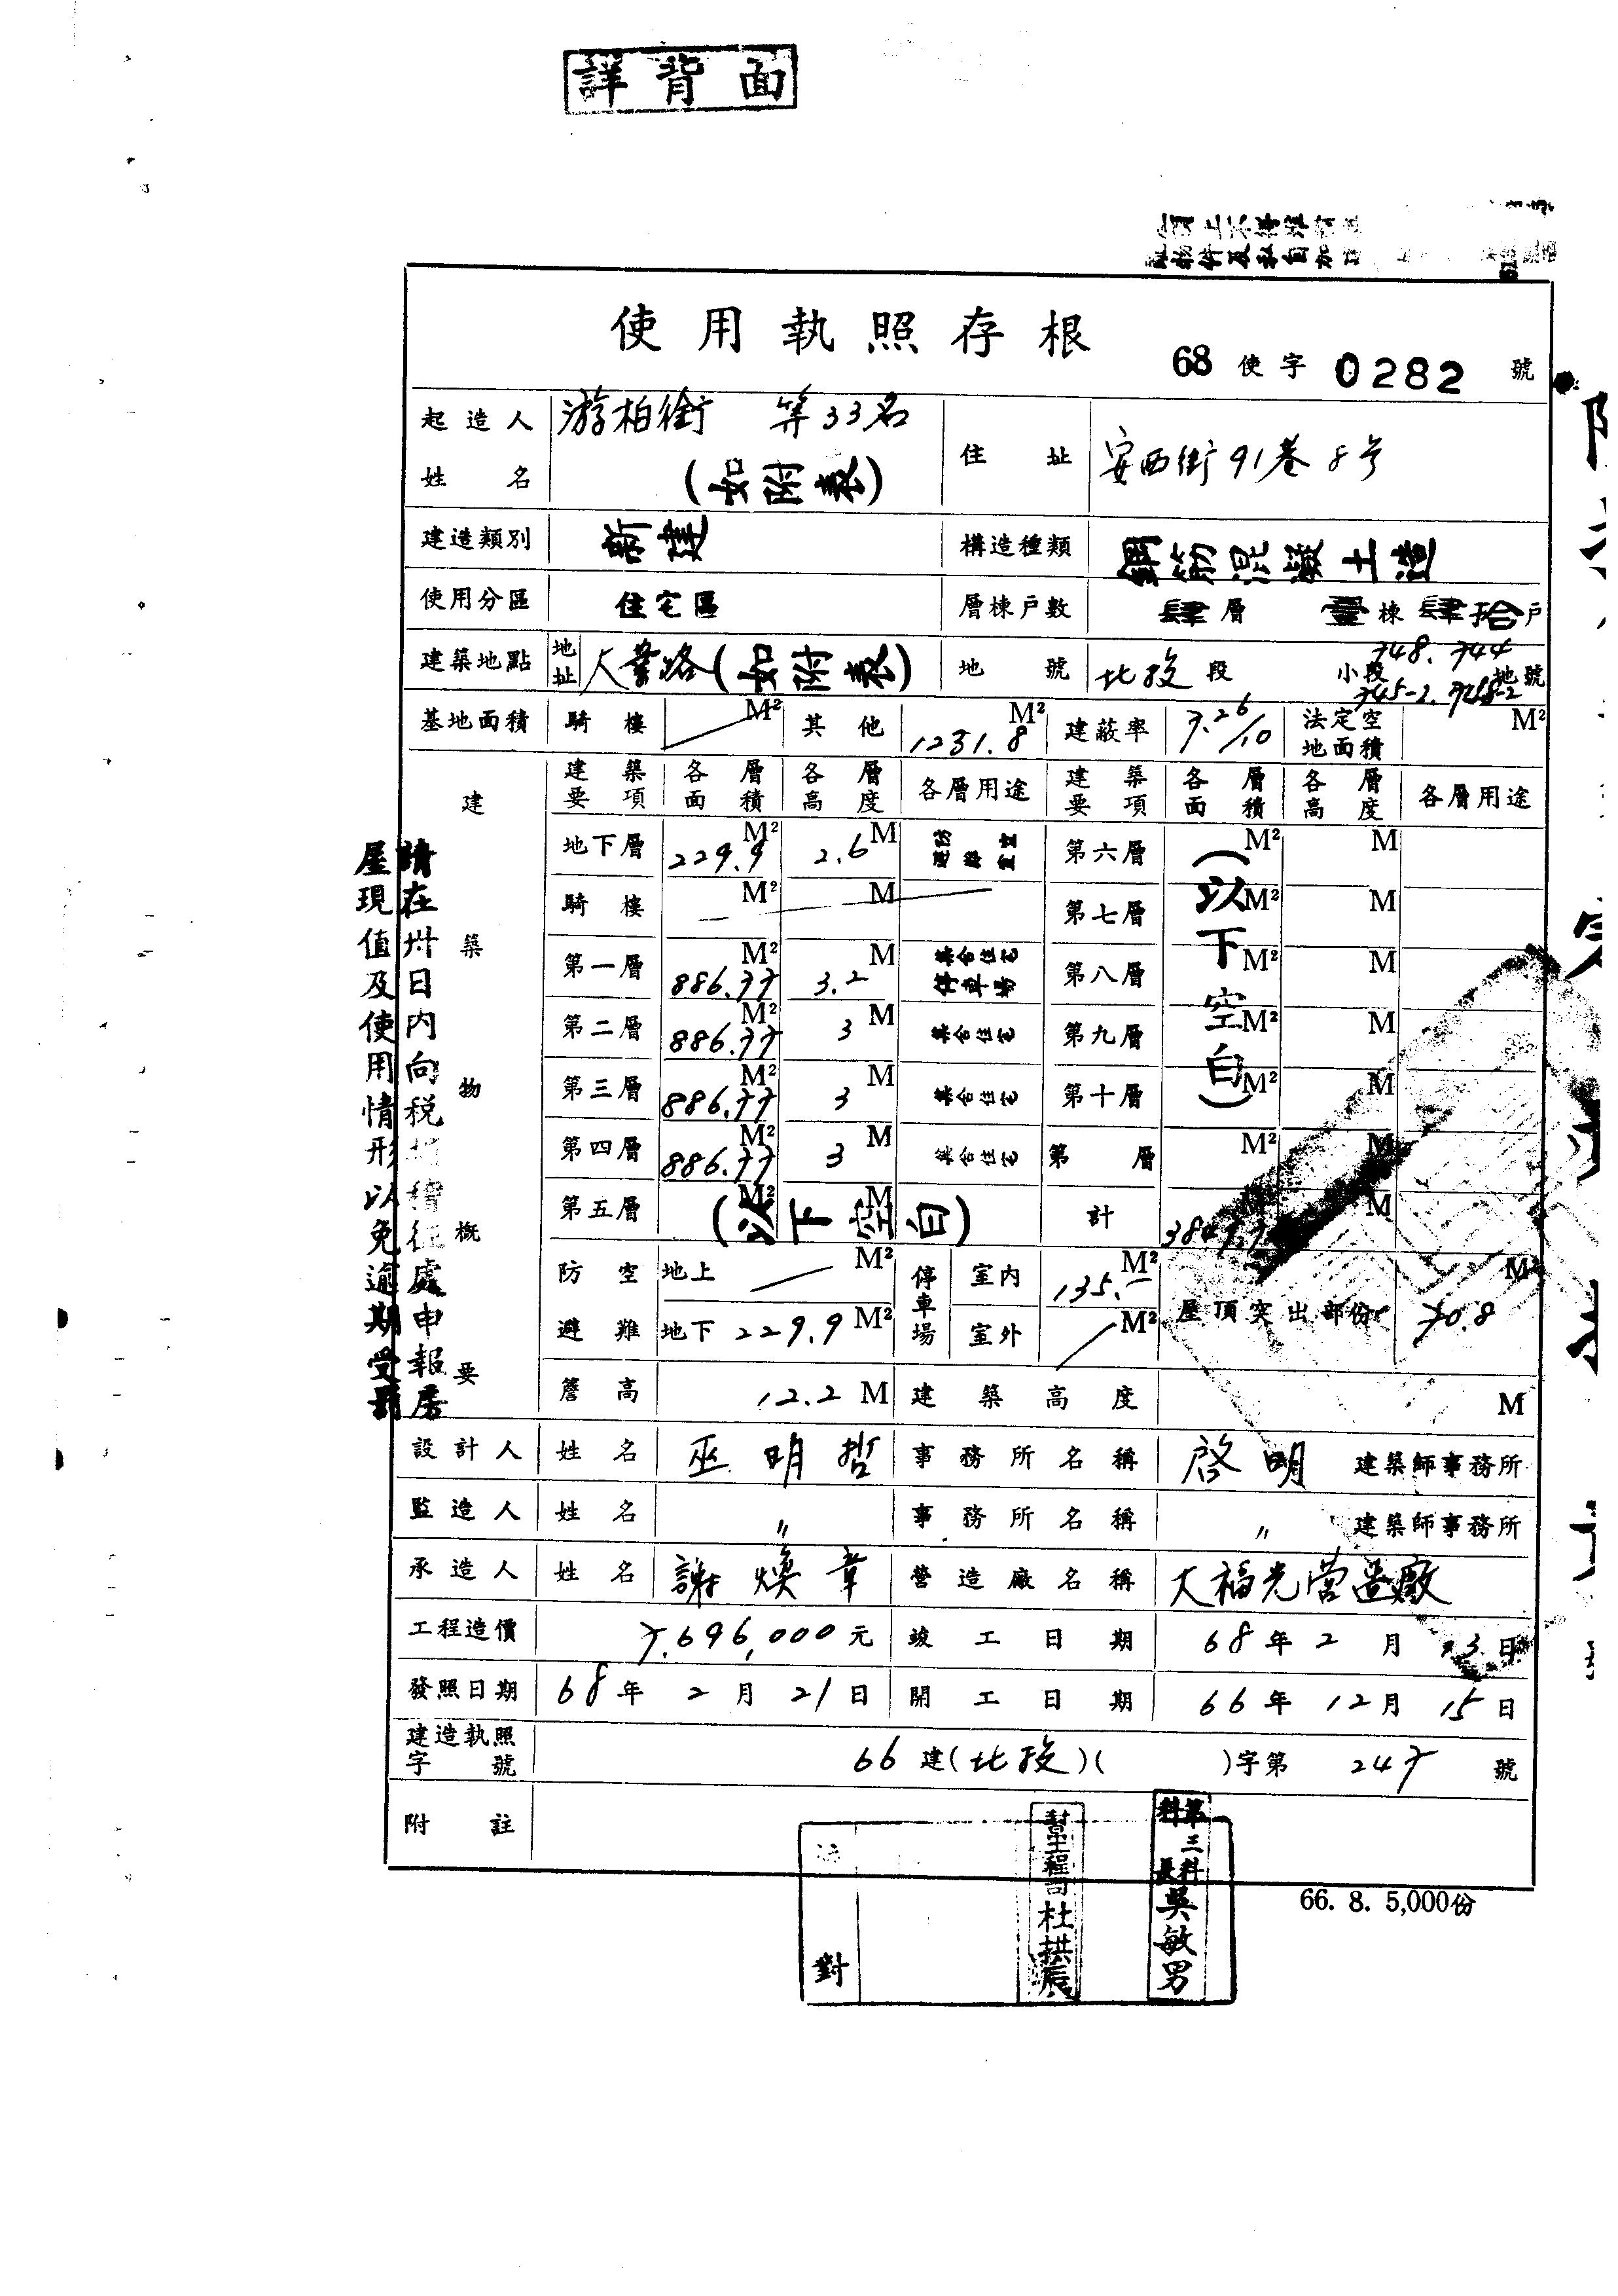 詳背面
使用執照存根
68 使字 0282 號
起造人姓名 游柏銜 等33名 (如附表) 住址 安西街91巷8号
建造類別 新建 構造種類 鋼筋混凝土造
使用分區 住宅區 層棟戶數 肆層 壹棟 肆拾戶
建築地點 地址 大業路(如附表) 地號 北投段 小段 748. 744 745-2. 地號
基地面積 騎樓 M² 其他 1231.8 M² 建蔽率 7.26/10 法定空地面積 M²
建築物概要
建築要項 各層面積 各層高度 各層用途 建築要項 各層面積 各層高度 各層用途
地下層 229.9 M² 2.6 M 防空避難室 第六層 M² M
騎樓 M² M 第七層 M² M
第一層 886.77 M² 3.2 M 集合住宅 停車場 第八層 M² M
第二層 886.77 M² 3 M 集合住宅 第九層 M² M
第三層 886.77 M² 3 M 集合住宅 第十層 M² M
第四層 886.77 M² 3 M 集合住宅 第 層 M² M
第五層 M² M (以下空白) 計 M
(以下空白)
防空避難 地上 M² 停車場 室內 135.- M² 屋頂突出部份 70.8 M²
地下 229.9 M² 室外 M²
簷高 12.2 M 建築高度 M
設計人 姓名 巫明哲 事務所名稱 啓明 建築師事務所
監造人 姓名 〃 事務所名稱 〃 建築師事務所
承造人 姓名 謝煥章 營造廠名稱 大福光营造廠
工程造價 7.696,000元 竣工日期 68年2月13日
發照日期 68年2月21日 開工日期 66年12月15日
建造執照字號 66建(北投)( )字第 247 號
附註
請在卅日內向稅捐稽征處申報房
屋現值及使用情形以免逾期受罰
對
幫工程司杜拱辰
第三科科長吳敏男
66. 8. 5,000份